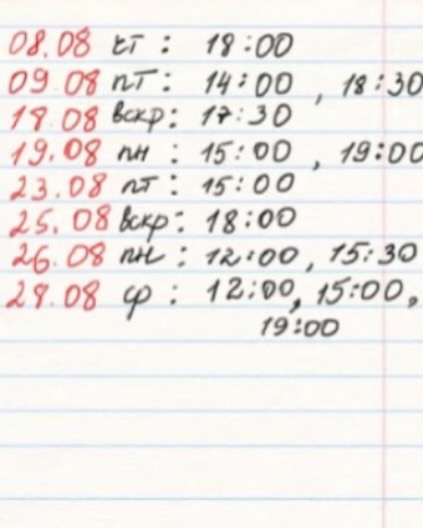 08.08 чт : 18:00
09.08 пт : 14:00 , 18:30
18.08 вскр : 17:30
19.08 пн : 15:00 , 19:00
23.08 пт : 15:00
25.08 вскр : 18:00
26.08 пн : 12:00 , 15:30
28.08 ср : 12:00, 15:00,
19:00